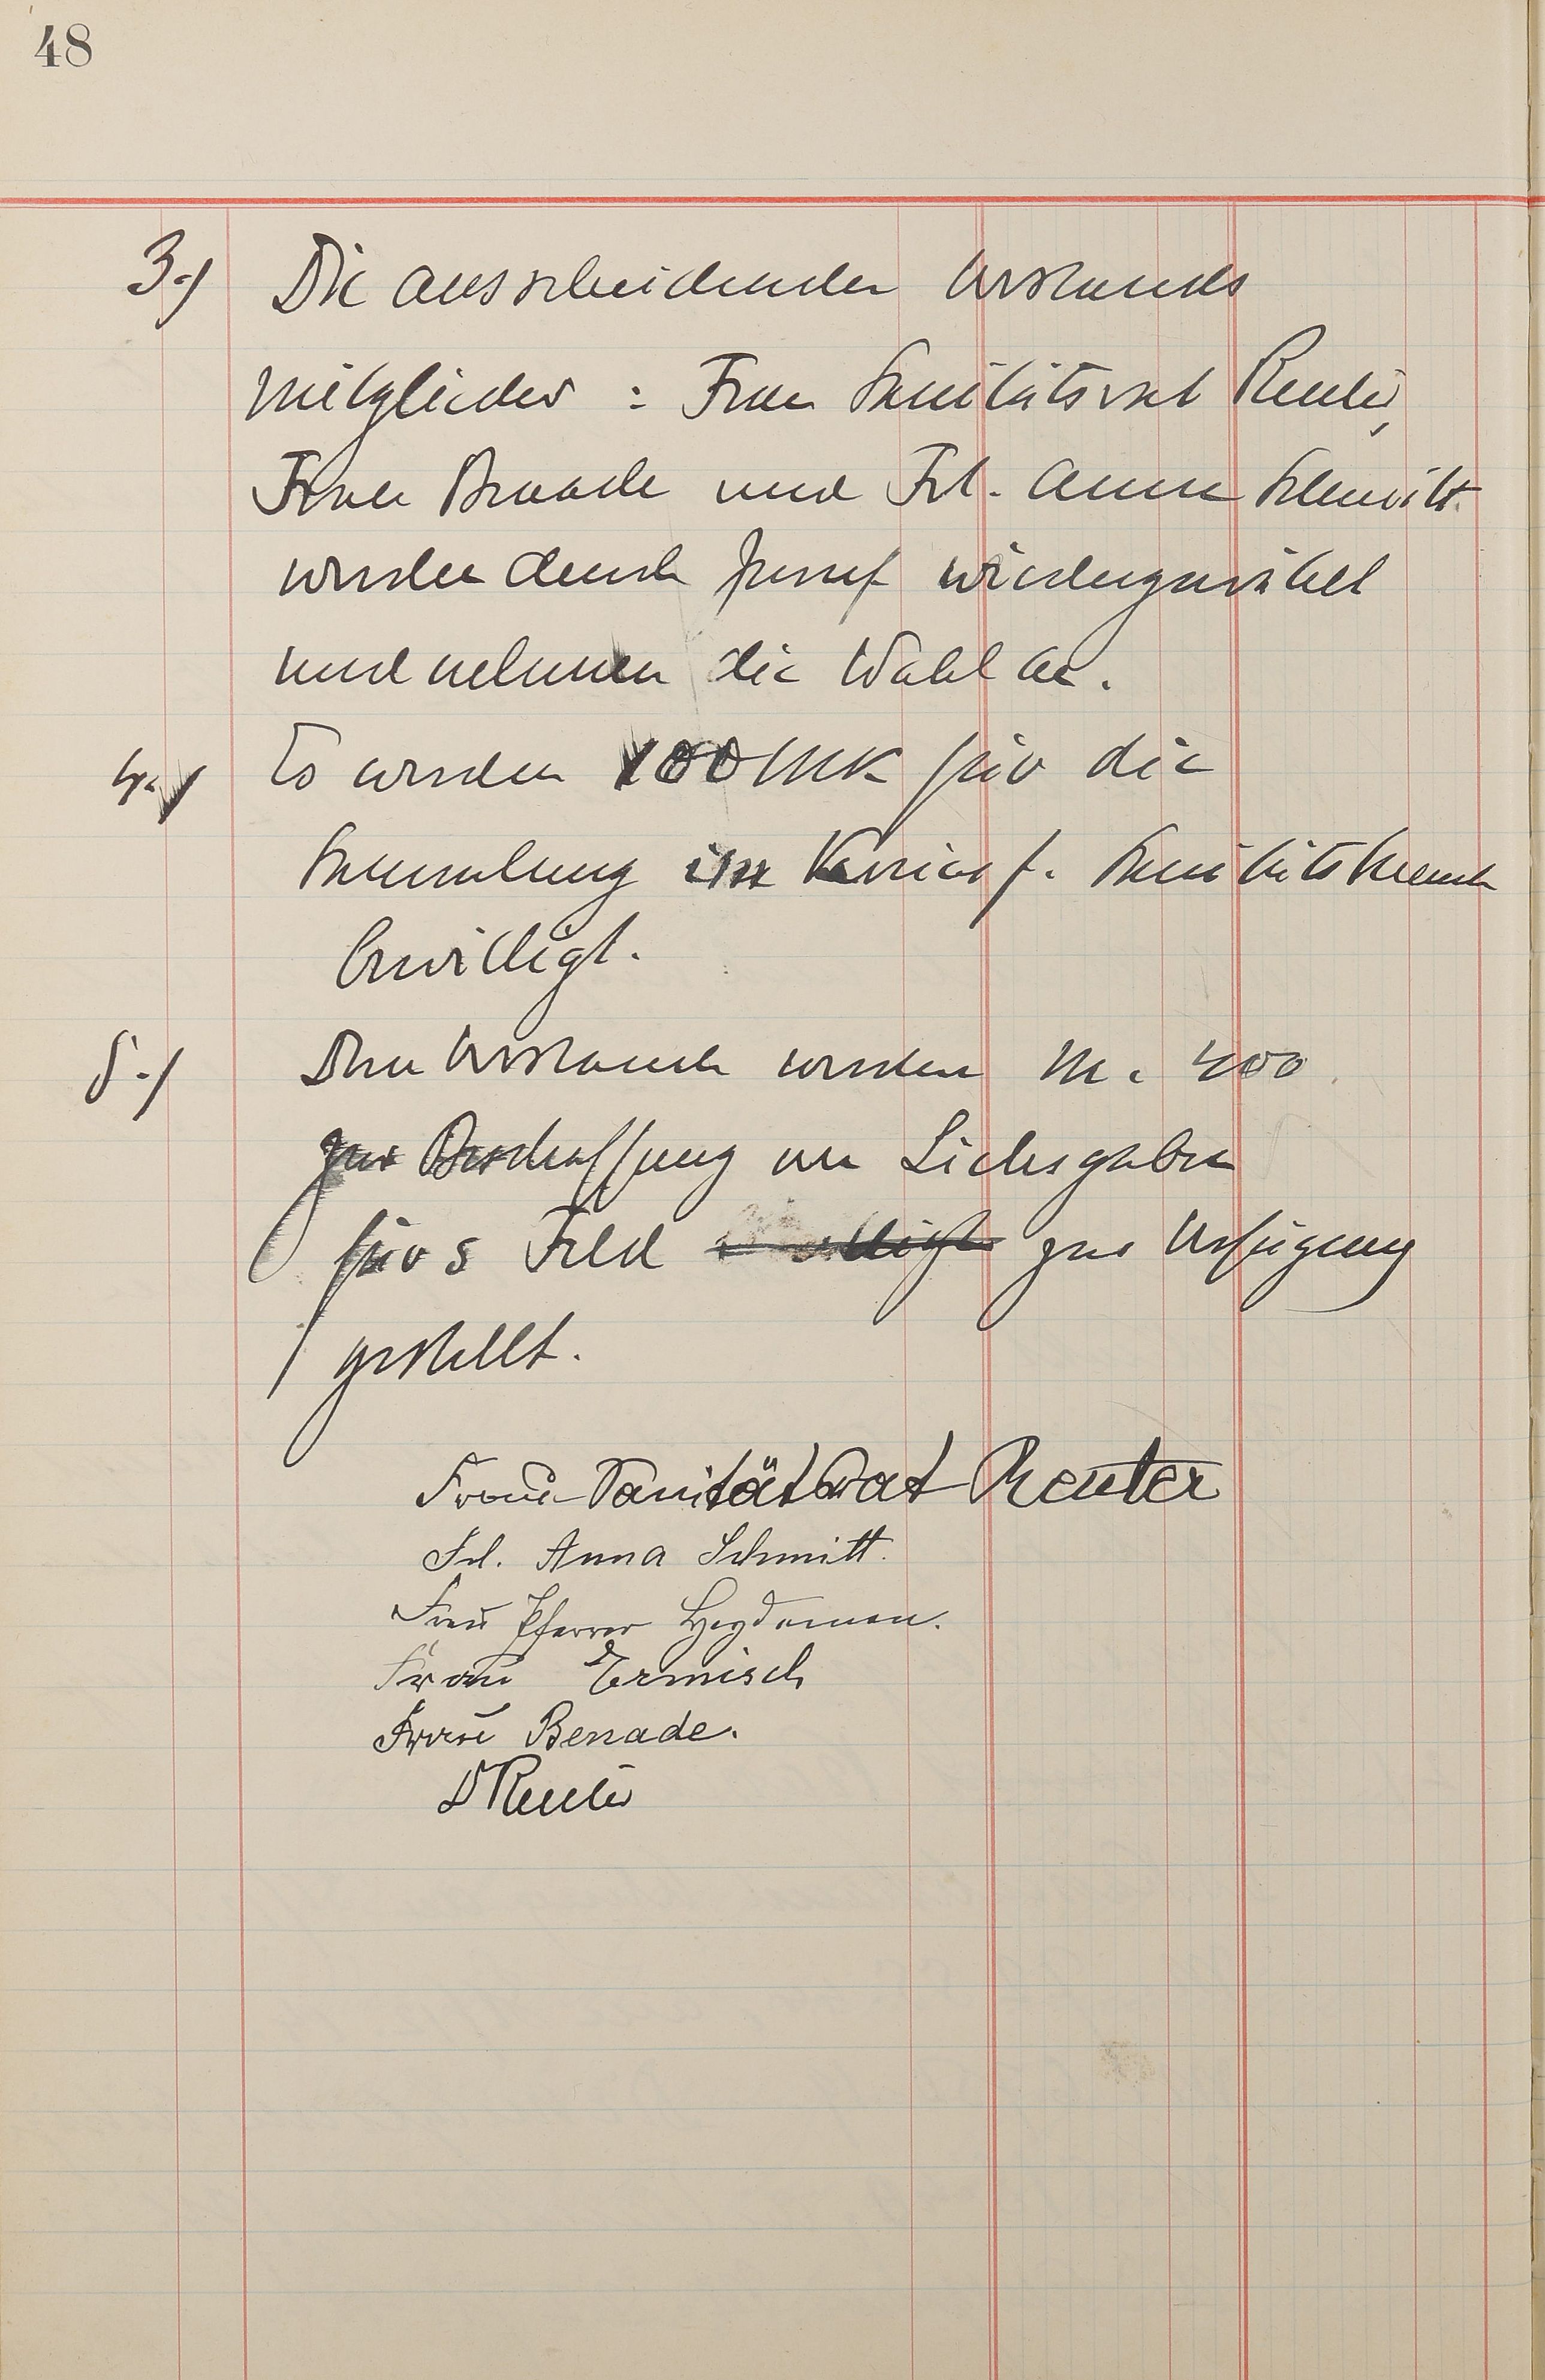 48
3.) Die ausscheidenden Vorstands
mitglieder : Frau Sanitätsrat Reuter,
Frau Benade und Frl. Anna Schmitt
werden durch Zuruf wiedergewählt
und nehmen die Wahl an.
4.) Es werden 100 Mk für die
Sammlung im Verein f. Sanitätshunde
bewilligt.
5.) Dem Vorstande werden M. 400
zur Beschaffung von Liebesgaben
fürs Feld bewilligt zur Verfügung
gestellt.
Frau Sanitätsrat Reuter
Frl. Anna Schmitt.
Frau Pfarrer Heydemann.
Frau Ermisch
Frau Benade.
Dr Reuter